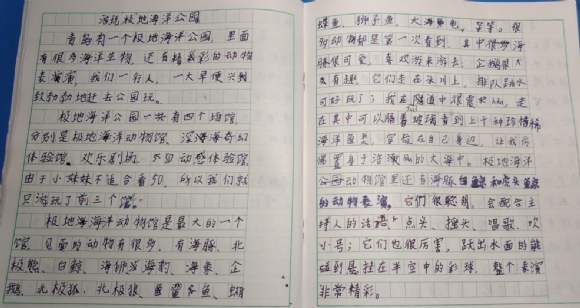 游玩极地海洋公园
青岛有一个极地海洋公园，里面
有很多海洋生物，还有精彩的动物
表演，我们一行人，一大早便兴致
勃勃地赶去公园玩。
极地海洋公园一共有四个场馆，
分别是极地海洋动物馆、深海奇幻
体验馆、欢乐剧场、5D动感体验馆，
由于小妹妹不适合看5D，所以我们就
只游玩了前三个馆。
极地海洋动物馆是最大的一个
馆，见面的动物有很多，有海豚、北
极熊、白鲸、海狮、海豹、海象、企
鹅、北极狐、北极狼、鲨鱼、
鱼、狮子鱼、大海龟，等等。很
多动物都是第一次看到，其中很多海
豚很可爱，喜欢游来游去；企鹅
有趣，它们走在冰川上，排队跳水
可好玩了；我在隧道中很震，走
在其中可以隔着玻璃看到上千种珍稀
海洋鱼类，穿梭在自己身边，让我仿
佛置身于的大海中。极地海洋
公园动物馆里还有海豚、白鲸和
的动物表演，它们很聪明，会配合主
持人的话语，点头、摇头、唱歌、吹
小号；它们也很厉害，跃出水面的能
碰到悬挂在半空中的彩球，整个表演
非常精彩。